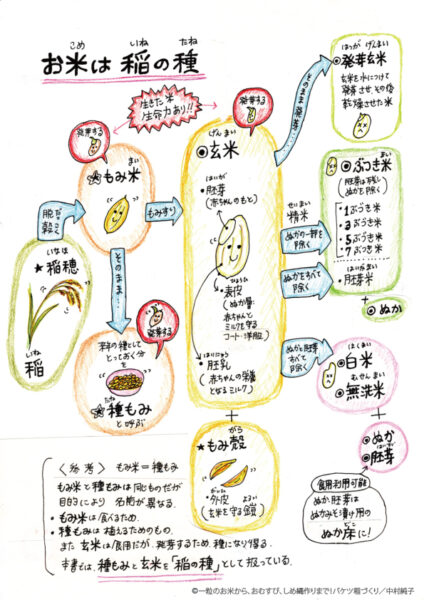 こめ いね たね
お米は 稲の種
生きた米
生命力あり!!
発芽する
発芽する
もみ米
まい
脱穀
だっこく
もみすり
いなほ
★稲穂
いね
稲
そのまま…
発芽する
来年の種として
とっておく分
を
たね
種もみ
と呼ぶ
げんまい
◎玄米
はいが
・胚芽
(赤ちゃんのもと)
ひょうひ
・表皮
(ぬか層:
赤ちゃんと
ミルクを守る
コート・洋服)
はいにゅう
・胚乳
(赤ちゃんの栄養
となるミルク)
+
がら
★もみ殻
・外皮
(玄米を守る鎧)
よろい
そのまま発芽
はつが げんまい
◎発芽玄米
玄米を水につけて
発芽させ、その後
乾燥させた米
せいまい
精米
ぬかの一部を
除く
ぬかをすべて
除く
ぬかと胚芽
すべて
除く
まい
◎ぶづき米
(胚芽は残し
ぬかを除く)
・1ぶづき米
・3ぶづき米
・5ぶづき米
・7ぶづき米
はいがまい
・胚芽米
+
◎ぬか
はくまい
◎白米
むせんまい
◎無洗米
+
◎ぬか
はいが
◎胚芽
食用利用可能
ぬか、胚芽は
ぬかみそ漬け用の
どこ
ぬか床に!
〈参考〉 もみ米=種もみ
もみ米と種もみは同じものだが
目的により 名前が異なる.
・もみ米は食べるため.
・種もみは植えるためのもの.
また 玄米は食用だが、発芽するため、種になり得る.
本書では、種もみと玄米を「稲の種」として扱っている.
©一粒のお米から、おむすび、しめ縄作りまで!バケツ稲づくり/中村純子